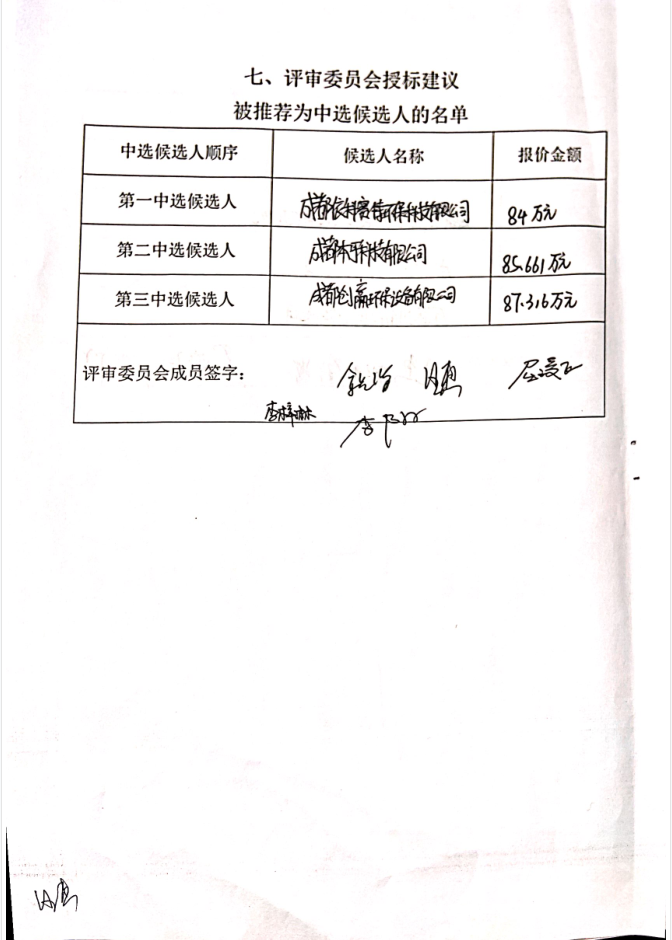 七、评审委员会授标建议
被推荐为中选候选人的名单
中选候选人顺序 候选人名称 报价金额
第一中选候选人 成都 环保科技有限公司 84万元
第二中选候选人 成都 科技有限公司 85.661万元
第三中选候选人 成都创赢环保设备有限公司 87.316万元
评审委员会成员签字：
李梓琳